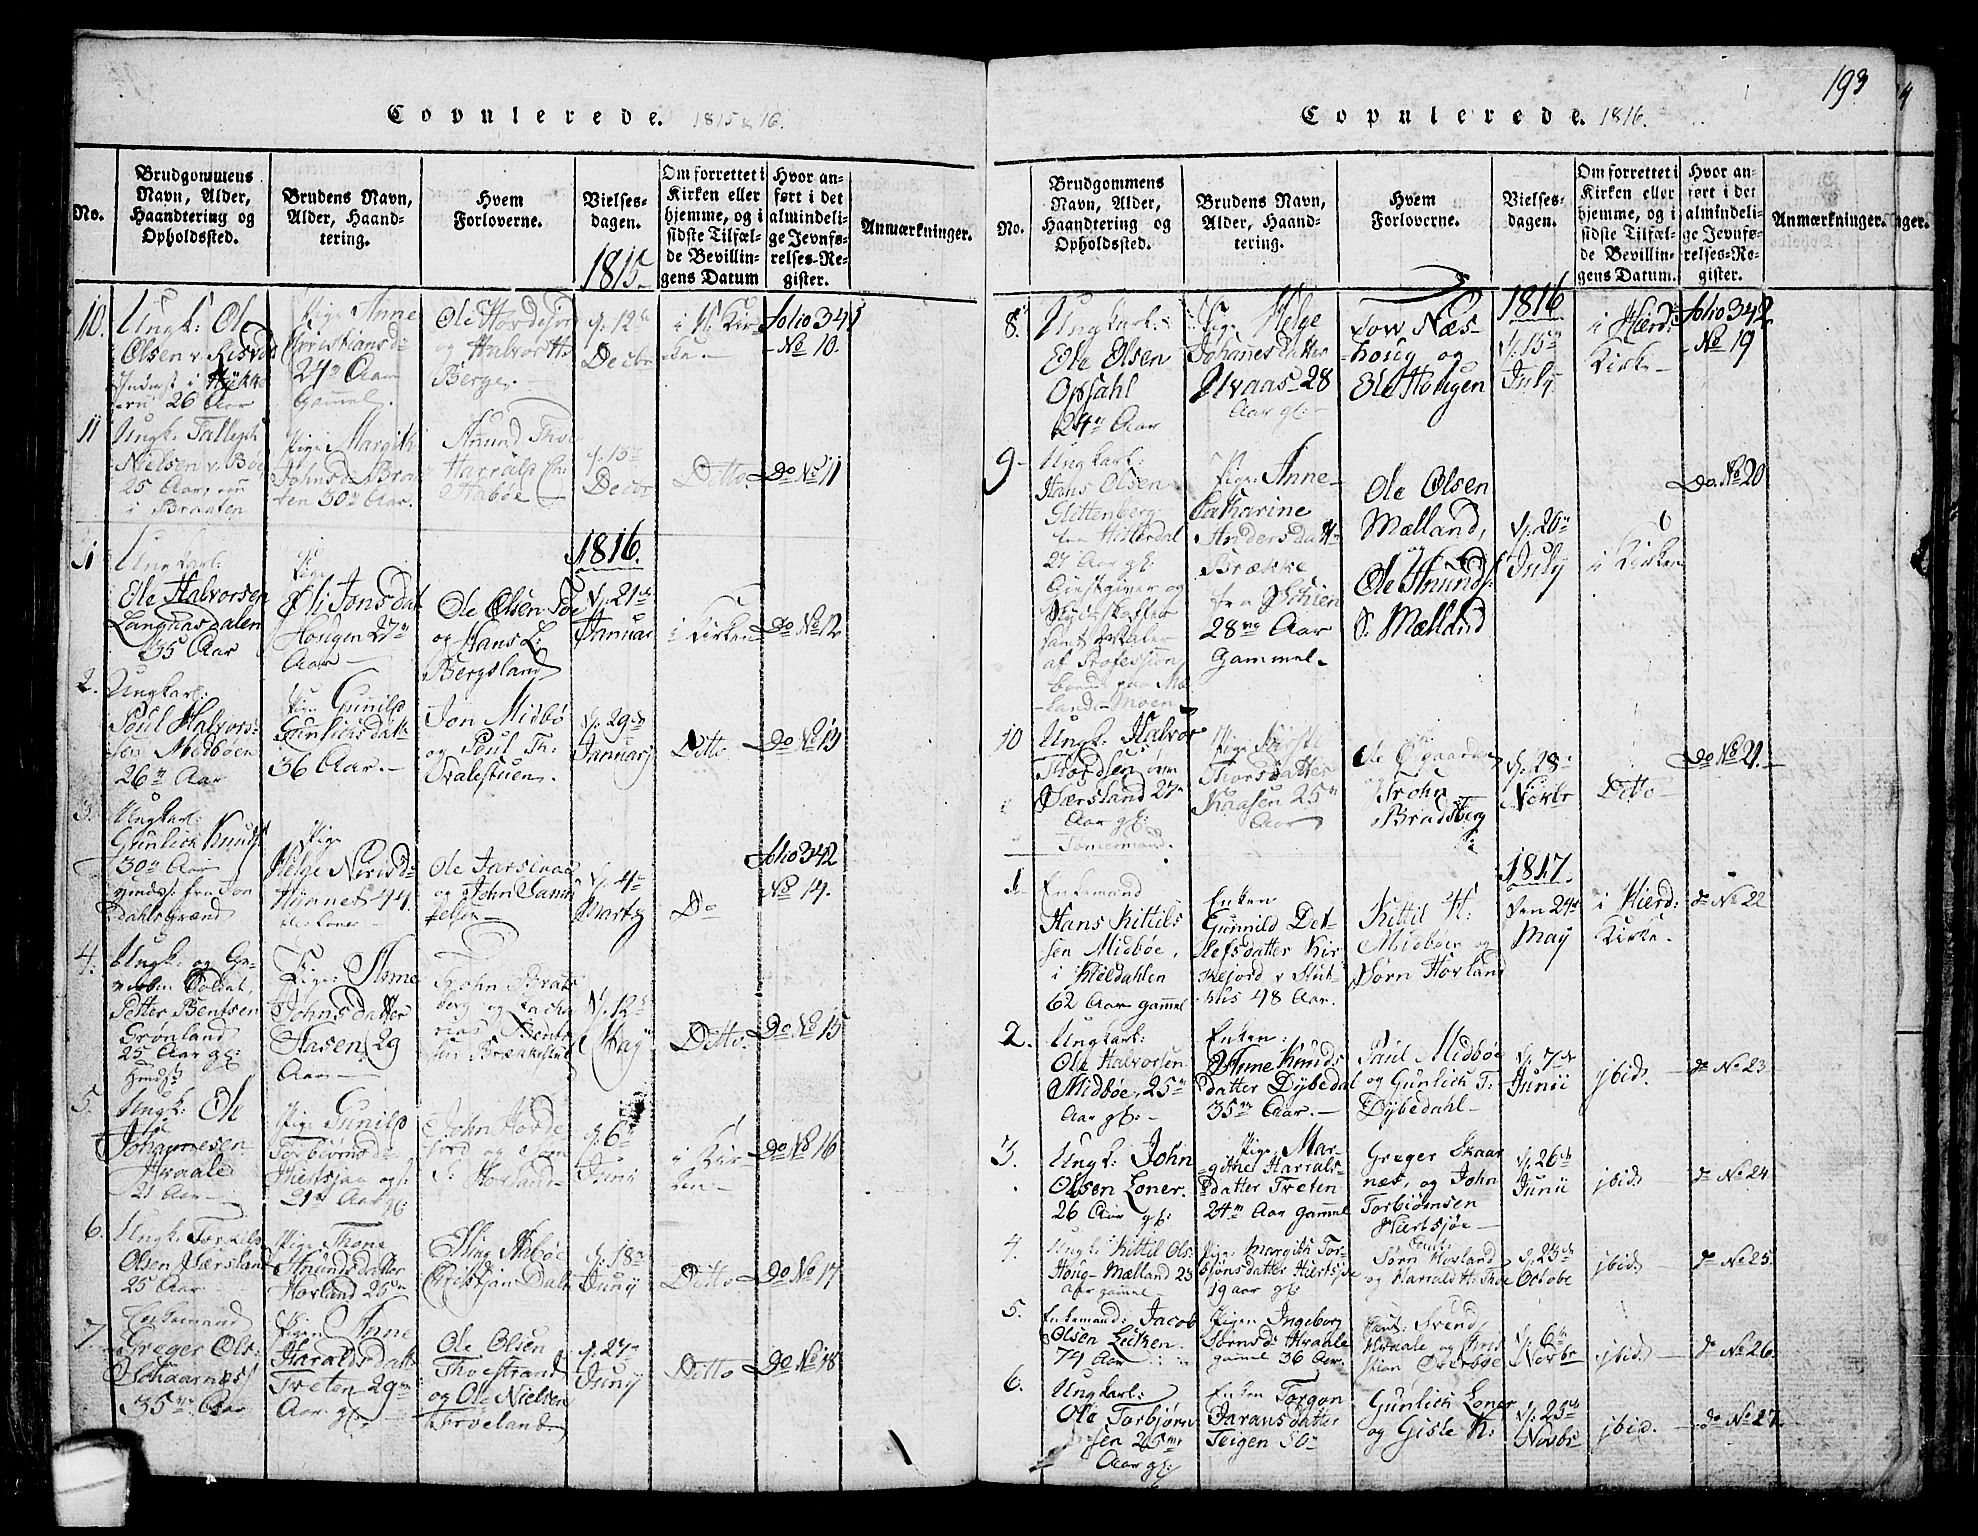 Copulerede. 1815 & 16.
No.
Brudgommens
Navn, Alder,
Haandtering og
Opholdssted.
Brudens Navn,
Alder, Haand-
tering.
Hvem
Forloverne.
Vielses-
dagen.
1815
Om forrettet i
Kirken eller
hjemme, og i
sidste Tilfæl-
de Bevillin-
gens Datum
Hvor an-
ført i det
almindeli-
ge Jevnfø-
relses-Re-
gister.
Anmærkninger.
10.
Ungk: Ole
Olsen
26 Aar
Pige Anne
Christiansd:
24 Aar
Gammel.
Ole Hordejord
og Halvor H:
Berge.
d. 12te
Decbr
i H. Kir-
ke.
Folio 341
No 10.
11
Ungk: Talleph
Nielsen v. Boe
25 Aar,
i Braaten
Pige Margith
Johnsd: Braa-
ten 30 Aar.
Amund Thoe
Harrald Ch:
Haboe
d. 15
Decbr
Ditto
Do No 11
1816.
1
Ungkarl:
Ole Halvorsen
Langaasdalen
35 Aar
Pige
Eli Jonsdat
Hougen 27
Aar
Ole Olsen Toe
og Hans L:
Bergsland
d. 21de
Januar
i Kirken
Do No 12
2.
Ungkarl:
Poul Halvor-
sen Midbøen
26 Aar
Pige Gunild
Gunlichsdatt
36 Aar.
Jon Midbø
og Poul Th:
Dalestuen.
d. 29de
Januarj
Ditto
Do No 13
3.
Ungkarl:
Gunlich Knuds
30 Aar
fra Jon
dahlsgrænd
Pige
Helge Nirisd:
44
Ole
og John
d. 4
Martz
Do
Folio 342
No 14.
4.
Ungk: og Ge-
Soldat,
Petter Bentsen
Grønland
25 Aar gl:
Pige: Anne
Johnsdatter
Hasen 29
Aar
John Brats
berg og Zacha
rias Bent
sen Brækkestul
d. 12
May
Ditto
Do No 15
5.
Ungk: Ole
Johannesen
Hvaale
21 Aar
Pige Gunild
Torbiørnsd:
Hiertsjaa
21 Aar gl:
John Horde
jord og Søren
S: Horland
d. 6
Junii
i Kir-
ken
Do No 16
6.
Ungk: Torkild
Olsen Særsland
25 Aar
Pige Thone
Amundsdatter
Horland 25
Elling Haboe
Christjan Dale
d. 18
Junij
Ditto
Do No 17
7.
Enkemand
Greger Ols:
Schaarnæs
35 Aar
Pigen Anne
Haraldsdatt
Treten 29
Aar gl:
Ole Olsen
Thoestrand
og Ole Nielsen
Torveland
d. 27
Junij
Ditto
Do No 18
193
Copulerede. 1816.
No.
Brudgommens
Navn, Alder,
Haandtering og
Opholdssted.
Brudens Navn,
Alder, Haand-
tering.
Hvem
Forloverne.
Vielses-
dagen.
Om forrettet i
Kirken eller
hjemme, og i
sidste Tilfæl-
de Bevillin-
gens Datum.
Hvor an-
ført i det
almindeli-
ge Jevnfø-
relses-Re-
gister.
Anmærkninger.
nger.
1816
8.
Ungkarl:
Ole Olsen
Opsahl
24 Aar
Pige Helge
Johannesdatter
Uvaas 28
Aar gl:
Tow Næs-
houg og
Ole Hougen
d. 15
July
i Hierd:
Kirke
Folio 342
No 19
9
Ungkarl:
Hans Olsen
Glittenberg
fra Hitterdal
27 Aar gl:
Giestgiver og
Skydsskaffer
samt Maler
af Profession
boende paa Mæ
lands Moen
Pige: Anne
Catharine
Andersdatt
Brække
fra Schien
28 Aar
Gammel.
Ole Olsen
Mælland,
og
Ole Amunds:
S. Mælland
d. 26
July
i Kirken
Do. No 20
10
Ungk: Halvor
Thordsen
Særsland 27
Aar gl:
Tømermand.
Pige: Kirsti
Thorsdatter
Kaasen 25
Aar
Ole Øigaarden
og
John
Bradsberg
d. 28
Novbr
Ditto
Do No 21.
1817.
1
Enkemand
Hans Kittils
sen Midbøe,
i Kieldahlen
62 Aar gammel
Enken
Gunnild Det-
lefsdatter Kir
kejord v Stut-
hus 48 Aar.
Kittil H:
Midbøen og
Sørn Horland
Den 24
May
i Hierd:
Kirke.
do No 22
2.
Ungkarl:
Ole Halvorsen
Midbøe, 25
Aar gl:
Enken:
Anne Knuds
datter Dybedal
35 Aar.
Paul Midbøe
og Gunlich T:
Dybedahl
d. 7de
Junii
jbid.
do No 23
3.
Ungk: John
Olsen Loner.
26 Aar gl:
Pige: Mar-
githe Harrals-
datter Treten
24 Aar gammel
Greger Skaar
næs, og John
Torbiørnsen
Hiertsjøe
d. 26de
Junii
jbid
do No 24
4
Ungk: Kittil Ols-
Houg-Mælland 23
Aar gammel
Pige: Margith Tor-
bjønsdatter Hiertsjøe
19 aar gl:
Sørn Horland
og Harrald H: Thoe
d. 23de
Octobe
jbid
do No 25
5.
Enkemand: Jacob
Olsen Leiken
74 Aar
Pigen Ingeborg
Sørnsd: Hvaale
gammel 36 Aar.
Svend
Hvaale og Chris
tian Øverbøe
d. 6te
Novbr
jbid
do No 26
6.
Ungkarl:
Ole Torbjørn
sen 25
Aar gl:
Enken Torgon
Jaransdatter
Teigen 50
Gunlich Loner
og Gisle K:
d. 23de
Novbr
jbid.
do No 27